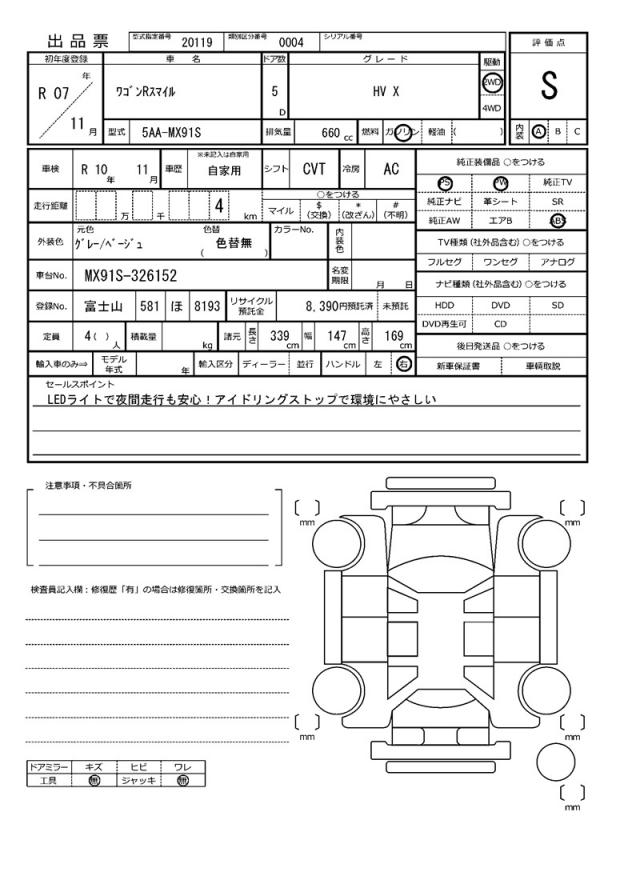 出品票 型式指定番号 20119 類別区分番号 0004 シリアル番号
初年度登録 車名 ドア数 グレード 駆動 評価点
R 07 年 11 月 ワゴンRスマイル 5 D HV X 2WD 4WD S
型式 5AA-MX91S 排気量 660 cc 燃料 ガソリン 軽油 ( ) 内装 A B C
車検 R 10 年 11 月 車歴 ※未記入は自家用 自家用 シフト CVT 冷房 AC
純正装備品 ○をつける
PS PW 純正TV
走行距離 万 千 4 km ○をつける
マイル $ (交換) * (改ざん) # (不明)
純正ナビ 革シート SR
純正AW エアB ABS
外装色 元色 グレー/ベージュ 色替 色替無 ( ) カラーNo. 内装色
TV種類 (社外品含む) ○をつける
フルセグ ワンセグ アナログ
車台No. MX91S-326152 名変期限 月 日
ナビ種類 (社外品含む) ○をつける
登録No. 富士山 581 ほ 8193 リサイクル預託金 8,390円預託済 未預託
HDD DVD SD
DVD再生可 CD
定員 4 ( ) 人 積載量 kg 諸元 長さ 339 cm 幅 147 cm 高さ 169 cm
後日発送品 ○をつける
輸入車のみ⇒ モデル年式 年 輸入区分 ディーラー 並行 ハンドル 左 右
新車保証書 車輌取説
セールスポイント
LEDライトで夜間走行も安心!アイドリングストップで環境にやさしい
注意事項・不具合箇所
mm mm
検査員記入欄:修復歴「有」の場合は修復箇所・交換箇所を記入
mm mm
ドアミラー キズ ヒビ ワレ
工具 無 ジャッキ 無
mm